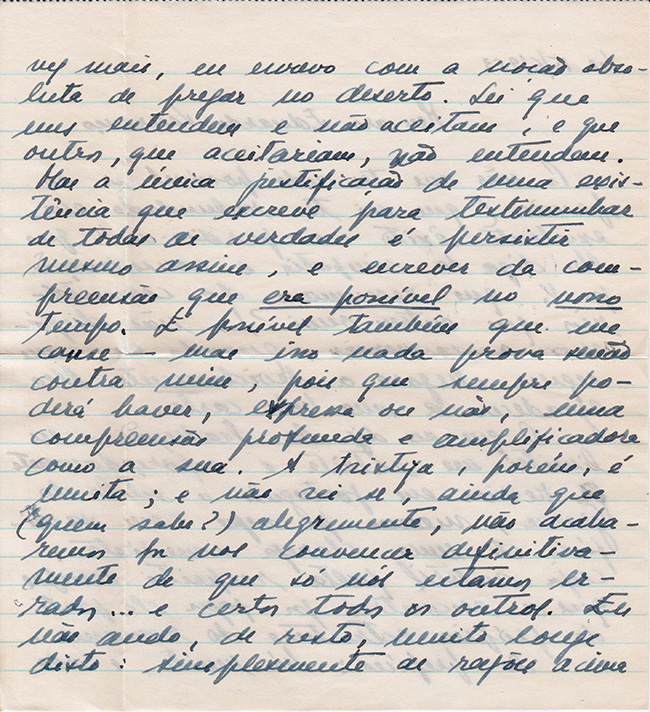 vez mais, eu escrevo com a noção abso-
luta de pregar no deserto. Sei que
uns entendem e não aceitam, e que
outros, que aceitariam, não entendem.
Mas a única justificação de uma exis-
tência que escreve para testemunhar
de todas as verdades é persistir
mesmo assim, e escrever da com-
preensão que era possível no nosso
tempo. É possível também que me
canse — mas isso nada prova senão
contra mim, pois que sempre po-
derá haver, expressa ou não, uma
compreensão profunda e amplificadora
como a sua. A tristeza, porém, é
muita; e não sei se, ainda que
(quem sabe?) alegremente, não acaba-
remos por nos convencer definitiva-
mente de que só nós estamos er-
rados... e certos todos os outros. Eu
não ando, de resto, muito longe
disto: simplesmente as razões acima